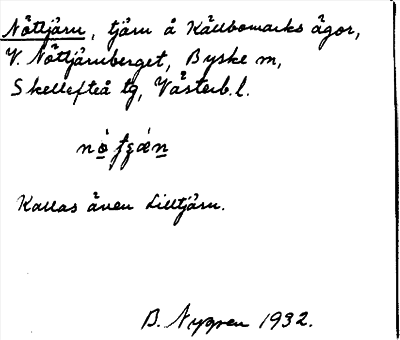 Nöttjärn, tjärn å Källbomarks ägor,
V. Nöttjärnberget, Byske sn,
Skellefteå tg, Västerb. l.
Kallas även Lilltjärn.
B. Nygren 1932.